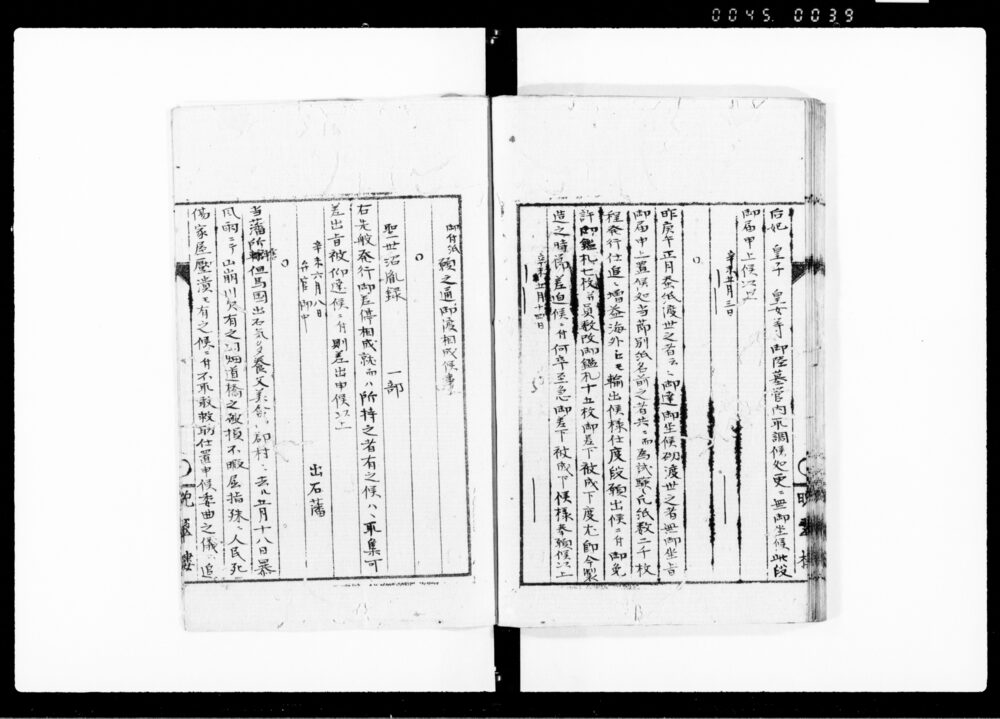 0045 0039
后妃 皇子 皇女等御陵墓管内取調候処更ニ無御坐候此段
御届申上候以上
辛未五月三日
昨庚午正月蚕紙渡世之者云々御達御坐候砌渡世之者無御坐旨
御届申上置候処当節別紙名前之者共ニ而為試験凡紙数二千枚
程発行仕追々増益海外江モ輸出候様仕度段願出候ニ付御免
許御鑑札七枚並員数改御鑑札十五枚御差下被成下度尤即今製
造之時節差迫候ニ付何卒至急御差下被成下候様奉願候以上
辛未五月十四日
御付紙 願之通御渡相成候事
聖世治乱録 一部
右先般発行御差停相成就而ハ所持之者有之候ハヽ取集可
差出旨被仰達候ニ付則差出申候以上
辛未六月八日 出石藩
弁官御中
当藩所轄但馬国出石気多養父美含郡村々去ル五月十八日暴
風雨ニテ山崩川欠有之田畑道橋之破損不暇屈指殊ニ人民死
傷家屋壓潰モ有之候ニ付不取敢救助仕置申候委曲之儀ハ追